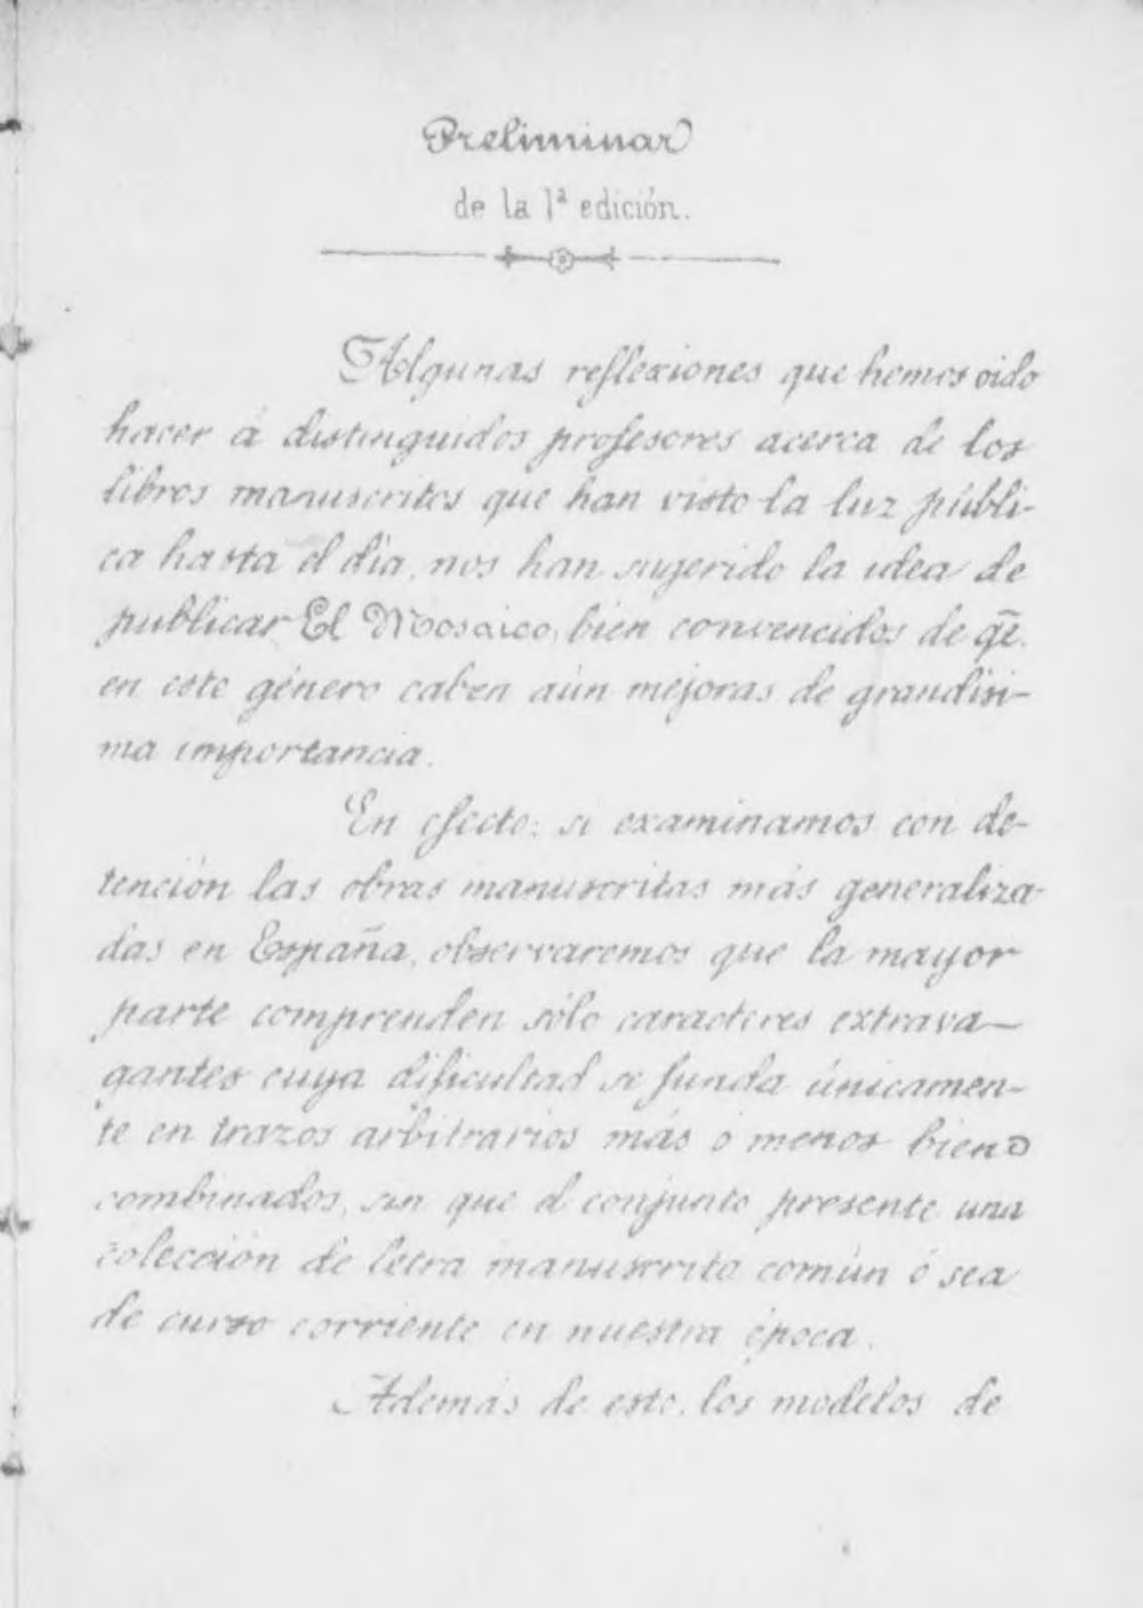 Preliminar
de la 1ª edición.
Algunas reflexiones que hemos oido
hacer á distinguidos profesores acerca de los
libros manuscritos que han visto la luz públi-
ca hasta el día, nos han sugerido la idea de
publicar El Mosaico, bien convencidos de q̃e.
en este género caben aún mejoras de grandísi-
ma importancia.
En efecto: si examinamos con de-
tención las obras manuscritas más generaliza-
das en España, observaremos que la mayor
parte comprenden sólo caracteres extrava-
gantes cuya dificultad se funda únicamen-
te en trazos arbitrarios más o menos bien
combinados, sin que el conjunto presente una
colección de letra manuscrita común ó sea
de curso corriente en nuestra época.
Además de esto, los modelos de